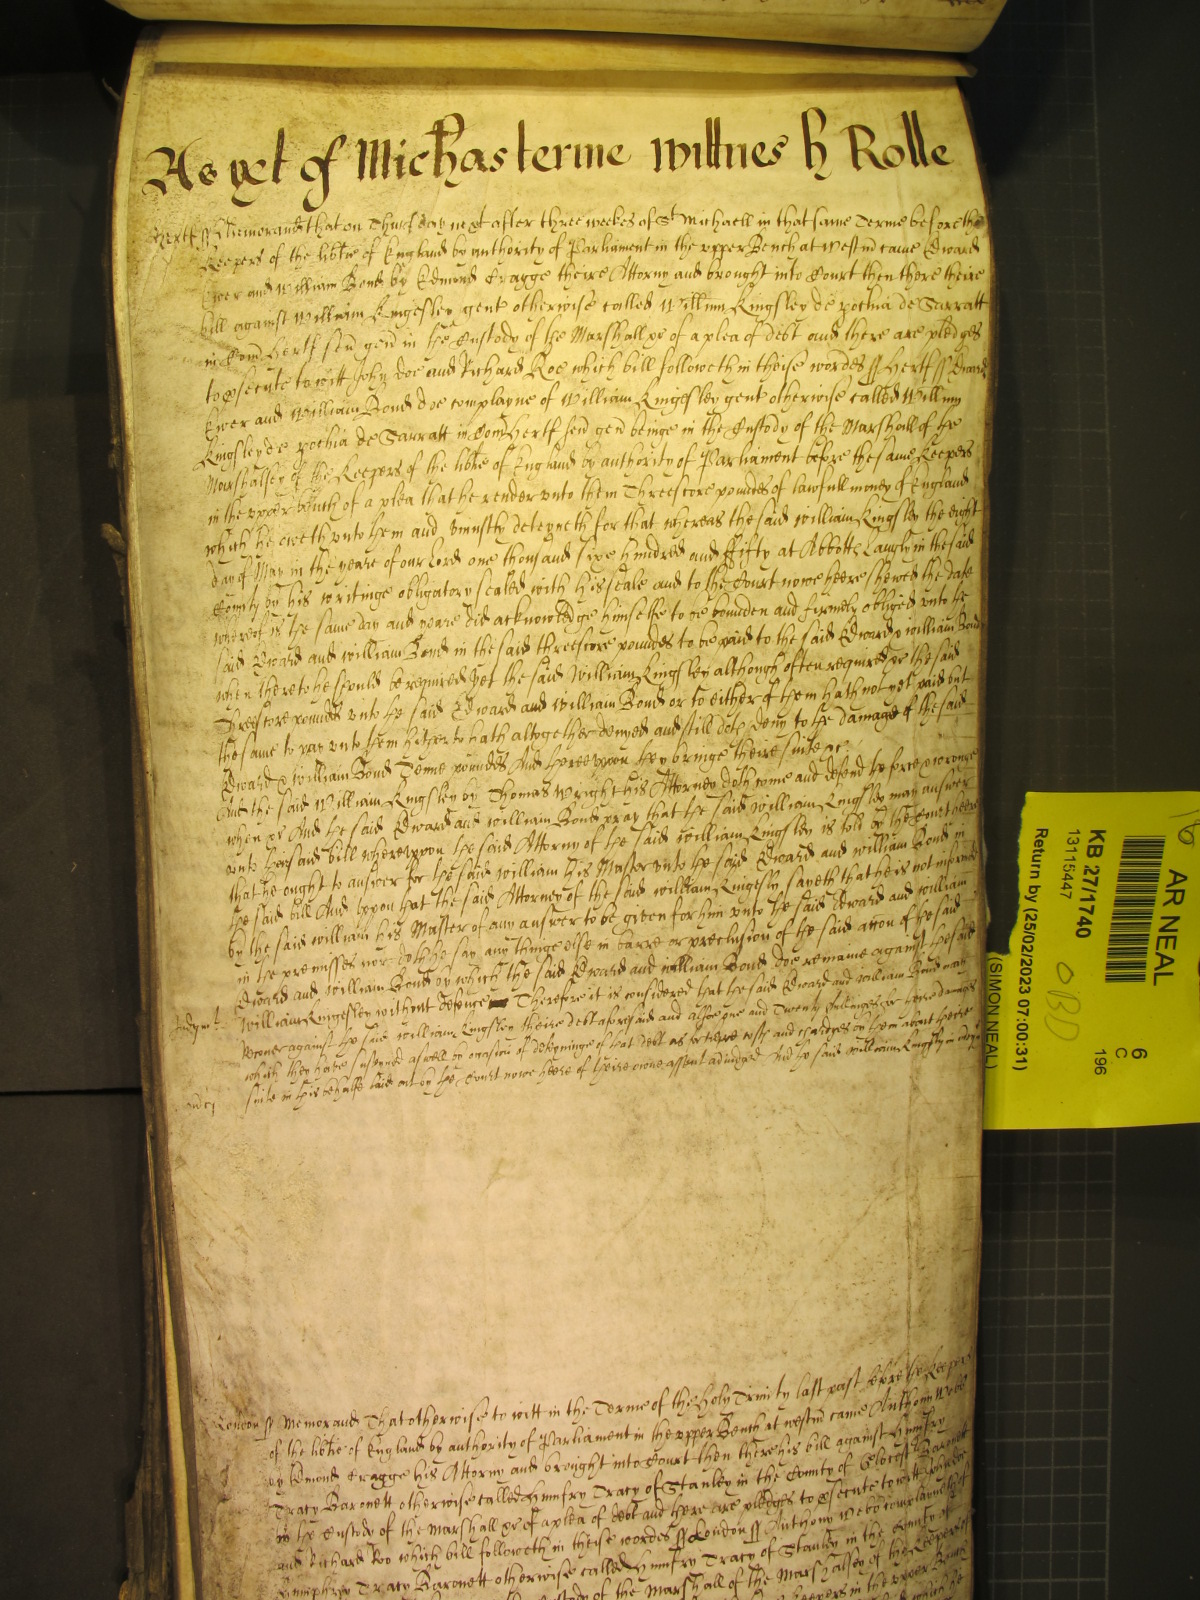 As yet of Mich'as terme Wittnes H Rolle
Hertf ss Memorand that on Thursday next after three weekes of St Michaell in that same Terme before the
Keepers of the lib'tie of England by authority of Parliament in the vpper Bench at Westm came Edward
Ewer and William Bond by Edmond Cragge theire Attorny and brought into Court then there theire
bill against William Kingesley gent otherwise called Willim Kingsley de pochia de Sarratt
in Com Hertf gen in the Custody of the Marshall &c of a plea of debt and there are pledges
to psecute to witt John Doe and Richard Roe which bill followeth in theise wordes ss Hertf ss Edward
Ewer and William Bond doe complayne of William Kingesley gent otherwise called Willim
Kingsley de pochia de Sarratt in Com Hertf gen beinge in the Custody of the Marshall of the
Marshalsey of the Keepers of the lib'tie of England by authority of Parliament before the same Keepers
in the vpper Bench of a plea that he render vnto them Threescore poundes of lawfull money of England
which he oweth vnto them and vniustly deteyneth for that whereas the said William Kingsley the eight
day of May in the yeare of our Lord one thousand sixe hundred and ffifty at Abbotts Langly in the said
County by his writinge obligatory sealed with his seale and to the Court nowe heere shewed the date
whereof is the same day and yeare did acknowledge himselfe to be bounden and firmely obliged vnto the
said Edward and William Bond in the said threescore poundes to be paid to the said Edward & William Bond
when thereto he should be required yet the said William Kingsley although often required &c the said
Threescore poundes vnto the said Edward and William Bond or to either of them hath not yet paid but
the same to pay vnto them hitherto hath altogether denyed and still doth deny to the damage of the said
Edward & William Bond Tenne poundes And herevpon they bringe theire suite &c
And the said William Kingsley by Thomas Wright his Attorney doth come and defend the force & wronge
when &c And the said Edward and William Bond pray that the said William Kingsley may answer
vnto the said bill wherevpon the said Attorny of the said William Kingsley is told by the Court heere
that he ought to answer for the said William his Master vnto the said Edward and William Bond in
the said bill And vpon that the said Attorney of the said William Kingesly sayeth that he is not informed
by the said William his Master of any answer to be given for him vnto the said Edward and William
in the premisses nor doth he say any thinge else in barre or preclusion of the said accon of the said
Edward and William Bond by which the said Edward and William Bond doe remaine against the said
William Kingesley without defence Therefore it is considered that the said Edward and William Bond may
Judgmt
Recover against the said William Kingsley theire debt aforesaid and alsoe one and Twenty shillinges for theire damages
which they have susteyned aswell by occasion of deteyninge of that debt as for theire costs and chardges by them about theire
suite in this behalfe laid out by the Court nowe heere of theire owne assent adiudged And the said William Kingesly in mercy
London ss Memorand That otherwise to witt in the Terme of the Holy Trinity last past before the Keepers
of the lib'tie of England by authority of Parliament in the vpper Bench at Westm came Anthony Webb
by Edmond Cragge his Attorny and brought into Court then there his bill against Humfry
Tracy Baronett otherwise called Humfry Tracy of Stanley in the County of Glocest Baronett
in the Custody of the Marshall &c of a plea of debt and there are pledges to psecute to witt John Doe
and Richard Roo which bill followeth in theise wordes ss London ss Anthony Webb complayneth of
Humphry Tracy Baronett otherwise called Humfry Tracy of Stanley in the County of
Custody of the Marshall of the Marshalsey of the Keepers of
Keepers in the vpper Bench
AR NEAL
KB 27/1740
13115447
6
C
196
Return by (25/02/2023 07:00:31)
(SIMON NEAL)
OBD